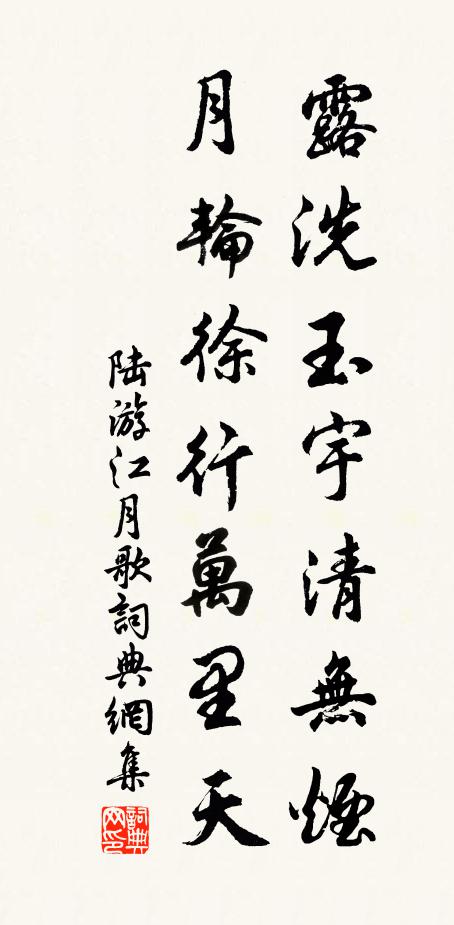 露洗玉宇清無煙
月輪徐行萬里天
陆游江月歌詞典網集
詞典网印